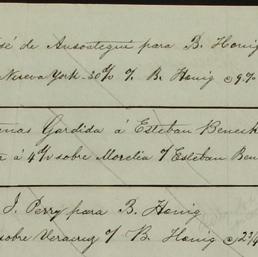 sé de Ansoategui para B. Honig
Nueva York - 30 d/ % B. Honig @ 9.%
Gardida á Esteban Beneck
á 4 d/ sobre Morelia % Esteban Ben
J. Perry para B. Honig
sobre Veracruz % B. Honig @ 2¾